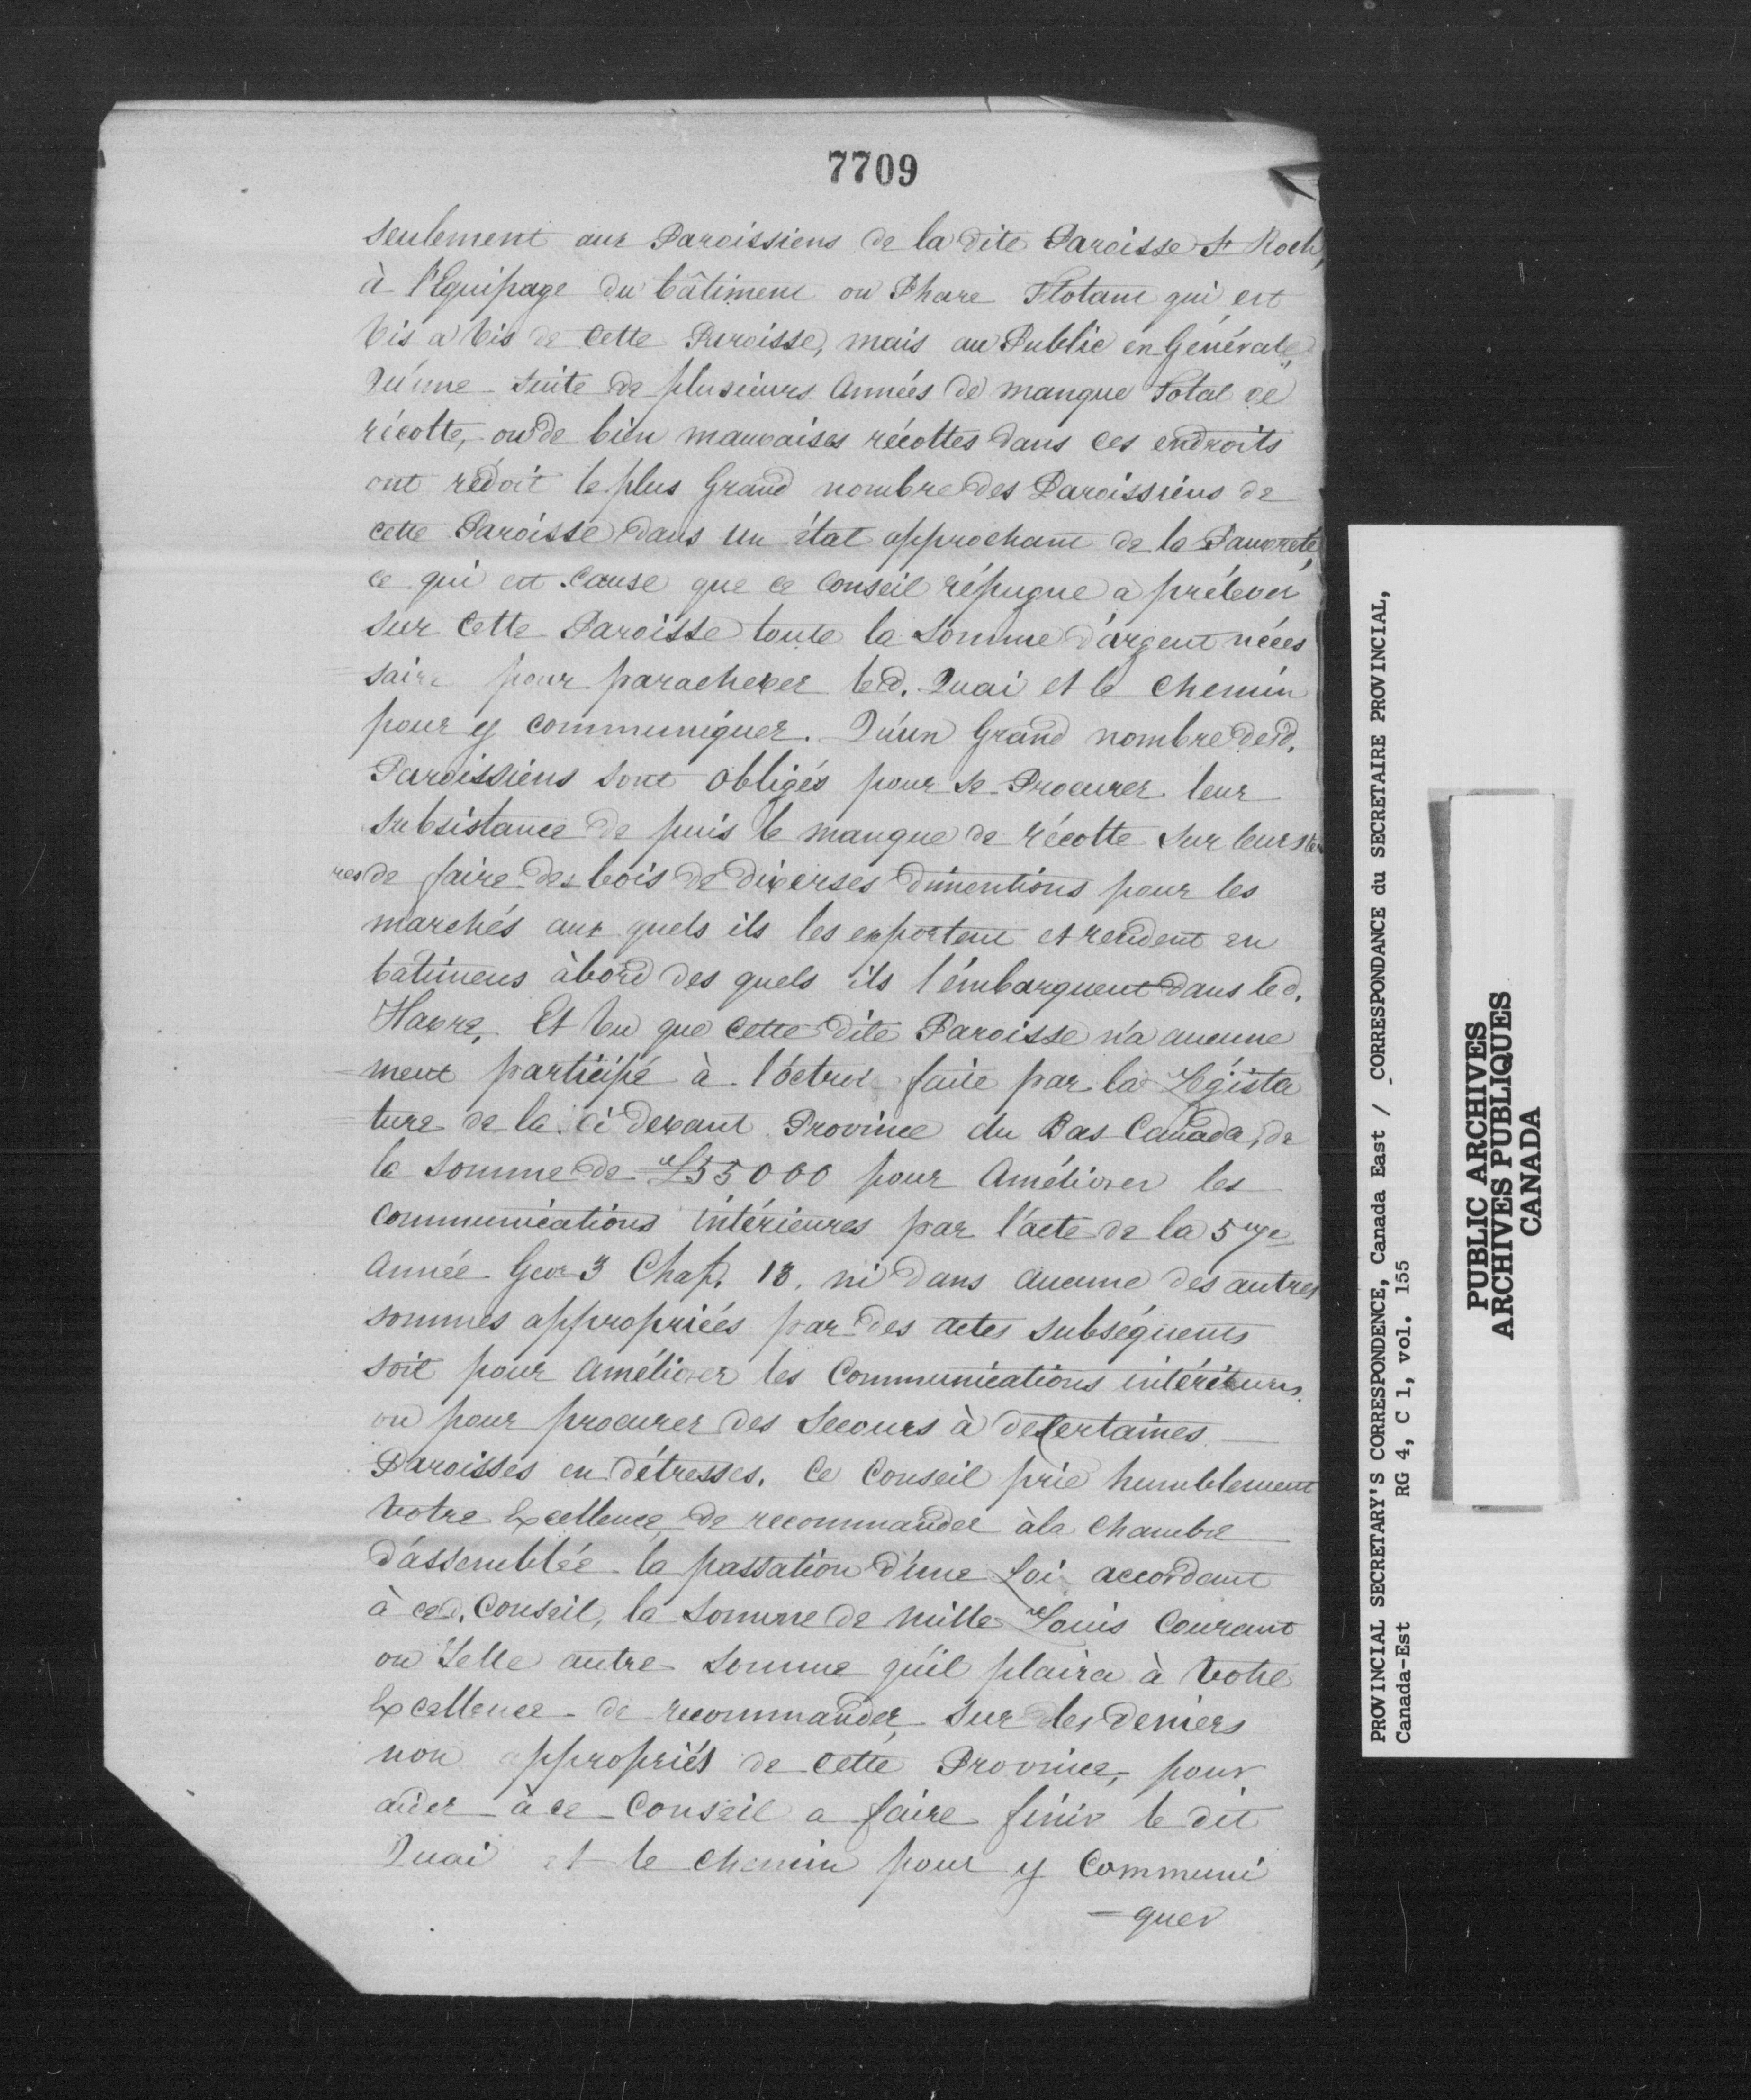 7709
seulement aux Paroissiens de la dite Paroisse St Roch,
à l'Equipage du bâtiment ou Phare Flotant qui est
Vis a Vis de cette Paroisse, mais au Public en Générale,
Qu'une suite de plusieurs Années de manque Total de
récolte, ou de bien mauvaises récoltes dans ces endroits
ont redoit le plus Grand nombre des Paroissiens de
cette Paroisse dans Un état approchant de la Pauvreté,
ce qui est Cause que ce Conseil répugne a prélever
sur Cette Paroisse toute la Somme d'argent néces
saire pour parachever led. Quai et le Chemin
pour y Communiquer. Qu'un Grand nombre desd.
Paroissiens sont obligés pour se Procurer leur
subsistance de puis le manque de récolte sur leurs ter
res de faire des bois de diverses dimentions pour les
marchés aux quels ils les exportent et rendent en
batimens à bord des quels ils l'émbarquent dans led.
Havre, Et Vu que Cette dite Paroisse n'a aucune
ment participé à l'octroi faite par la Législa
ture de la Ci devant Province du Bas Canada, de
la somme de £55000 pour Améliorer les
Communications intérieures par l'acte de la 57e
Année Geo 3 Chap. 13. ni dans Aucune des autres
sommes appropriées par des actes subséquents
soit pour Améliorer les Communications intérieures
ou pour procurer des Secours à de Certaines
Paroisses en détresses. Ce Conseil prie humblement
Votre Excellence de recommander à la Chambre
d'assemblée la passation d'une Loi accordant
à ced. Conseil, la Somme de mille Louis Courant
ou Telle autre Somme qu'il plaira à Votre
Excellence de recommander sur les deniers
non appropriés de Cette Province, pour
aider à ce Conseil a faire finir le dit
Quai et le Chemin pour y Communi
quer
PROVINCIAL SECRETARY'S CORRESPONDENCE, Canada East / CORRESPONDANCE du SECRETAIRE PROVINCIAL,
Canada-Est RG 4, C 1, vol. 155
PUBLIC ARCHIVES
ARCHIVES PUBLIQUES
CANADA